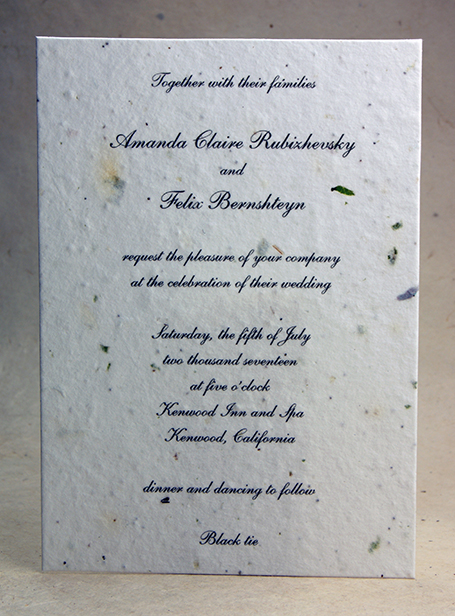 Together with their families
Amanda Claire Rubizhevsky
and
Felix Bernshteyn
request the pleasure of your company
at the celebration of their wedding
Saturday, the fifth of July
two thousand seventeen
at five o'clock
Kenwood Inn and Spa
Kenwood, California
dinner and dancing to follow
Black tie